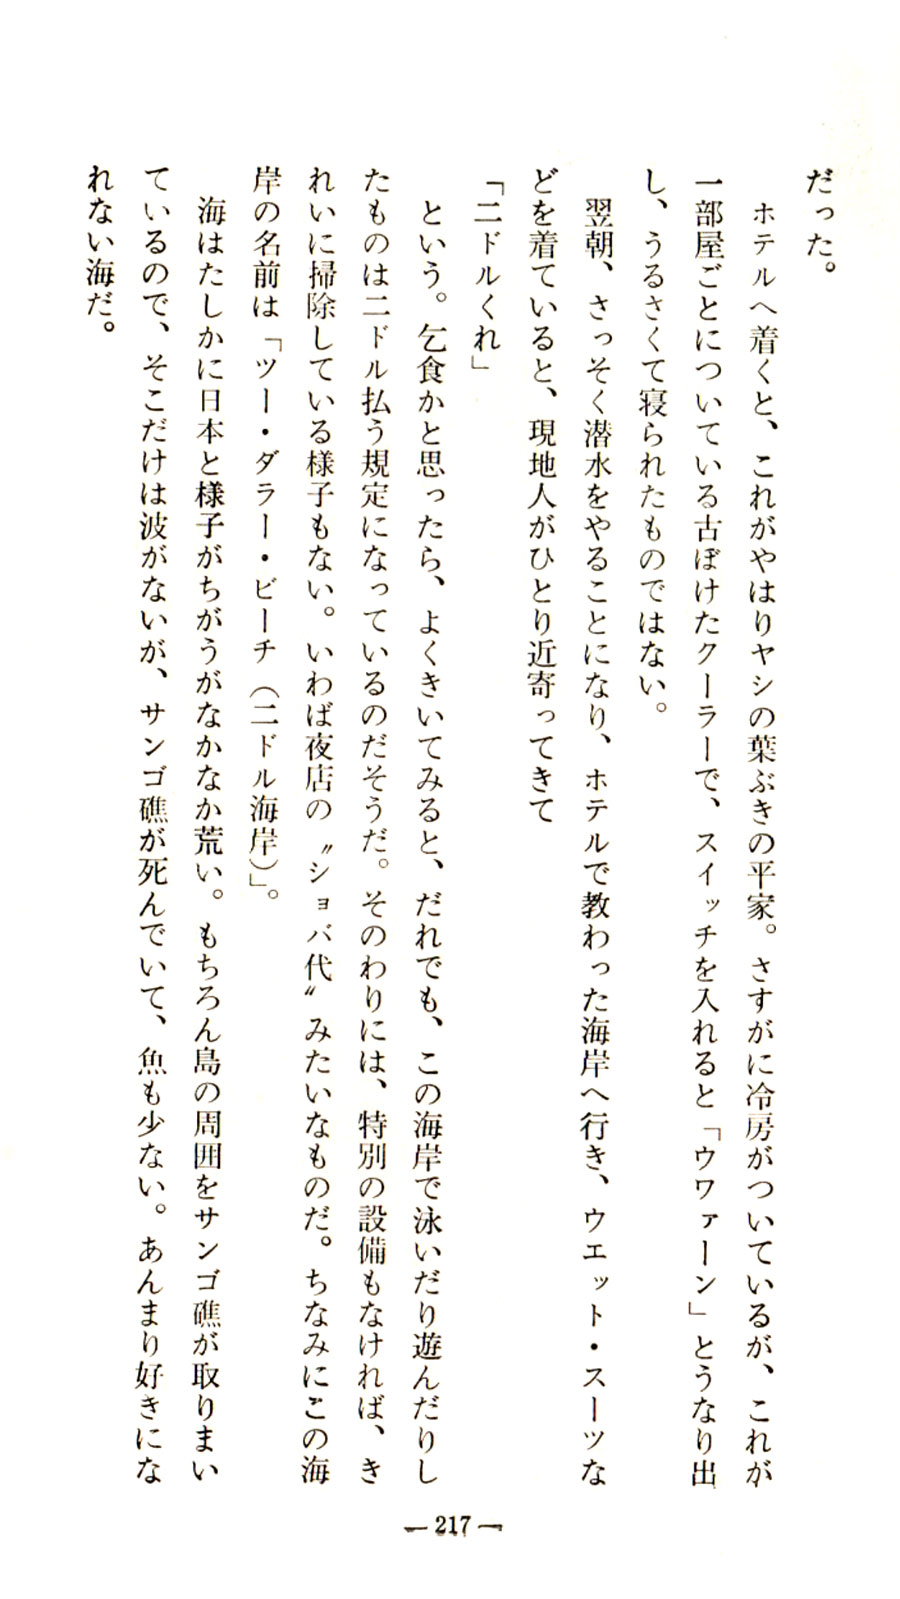 だった。
　ホテルへ着くと、これがやはりヤシの葉ぶきの平家。さすがに冷房がついているが、これが
一部屋ごとについている古ぼけたクーラーで、スイッチを入れると「ウワァーン」とうなり出
し、うるさくて寝られたものではない。
　翌朝、さっそく潜水をやることになり、ホテルで教わった海岸へ行き、ウエット・スーツな
どを着ていると、現地人がひとり近寄ってきて
「二ドルくれ」
　という。乞食かと思ったら、よくきいてみると、だれでも、この海岸で泳いだり遊んだりし
たものは二ドル払う規定になっているのだそうだ。そのわりには、特別の設備もなければ、き
れいに掃除している様子もない。いわば夜店の〝ショバ代〟みたいなものだ。ちなみにこの海
岸の名前は「ツー・ダラー・ビーチ（二ドル海岸）」。
　海はたしかに日本と様子がちがうがなかなか荒い。もちろん島の周囲をサンゴ礁が取りまい
ているので、そこだけは波がないが、サンゴ礁が死んでいて、魚も少ない。あんまり好きにな
れない海だ。
— 217 —